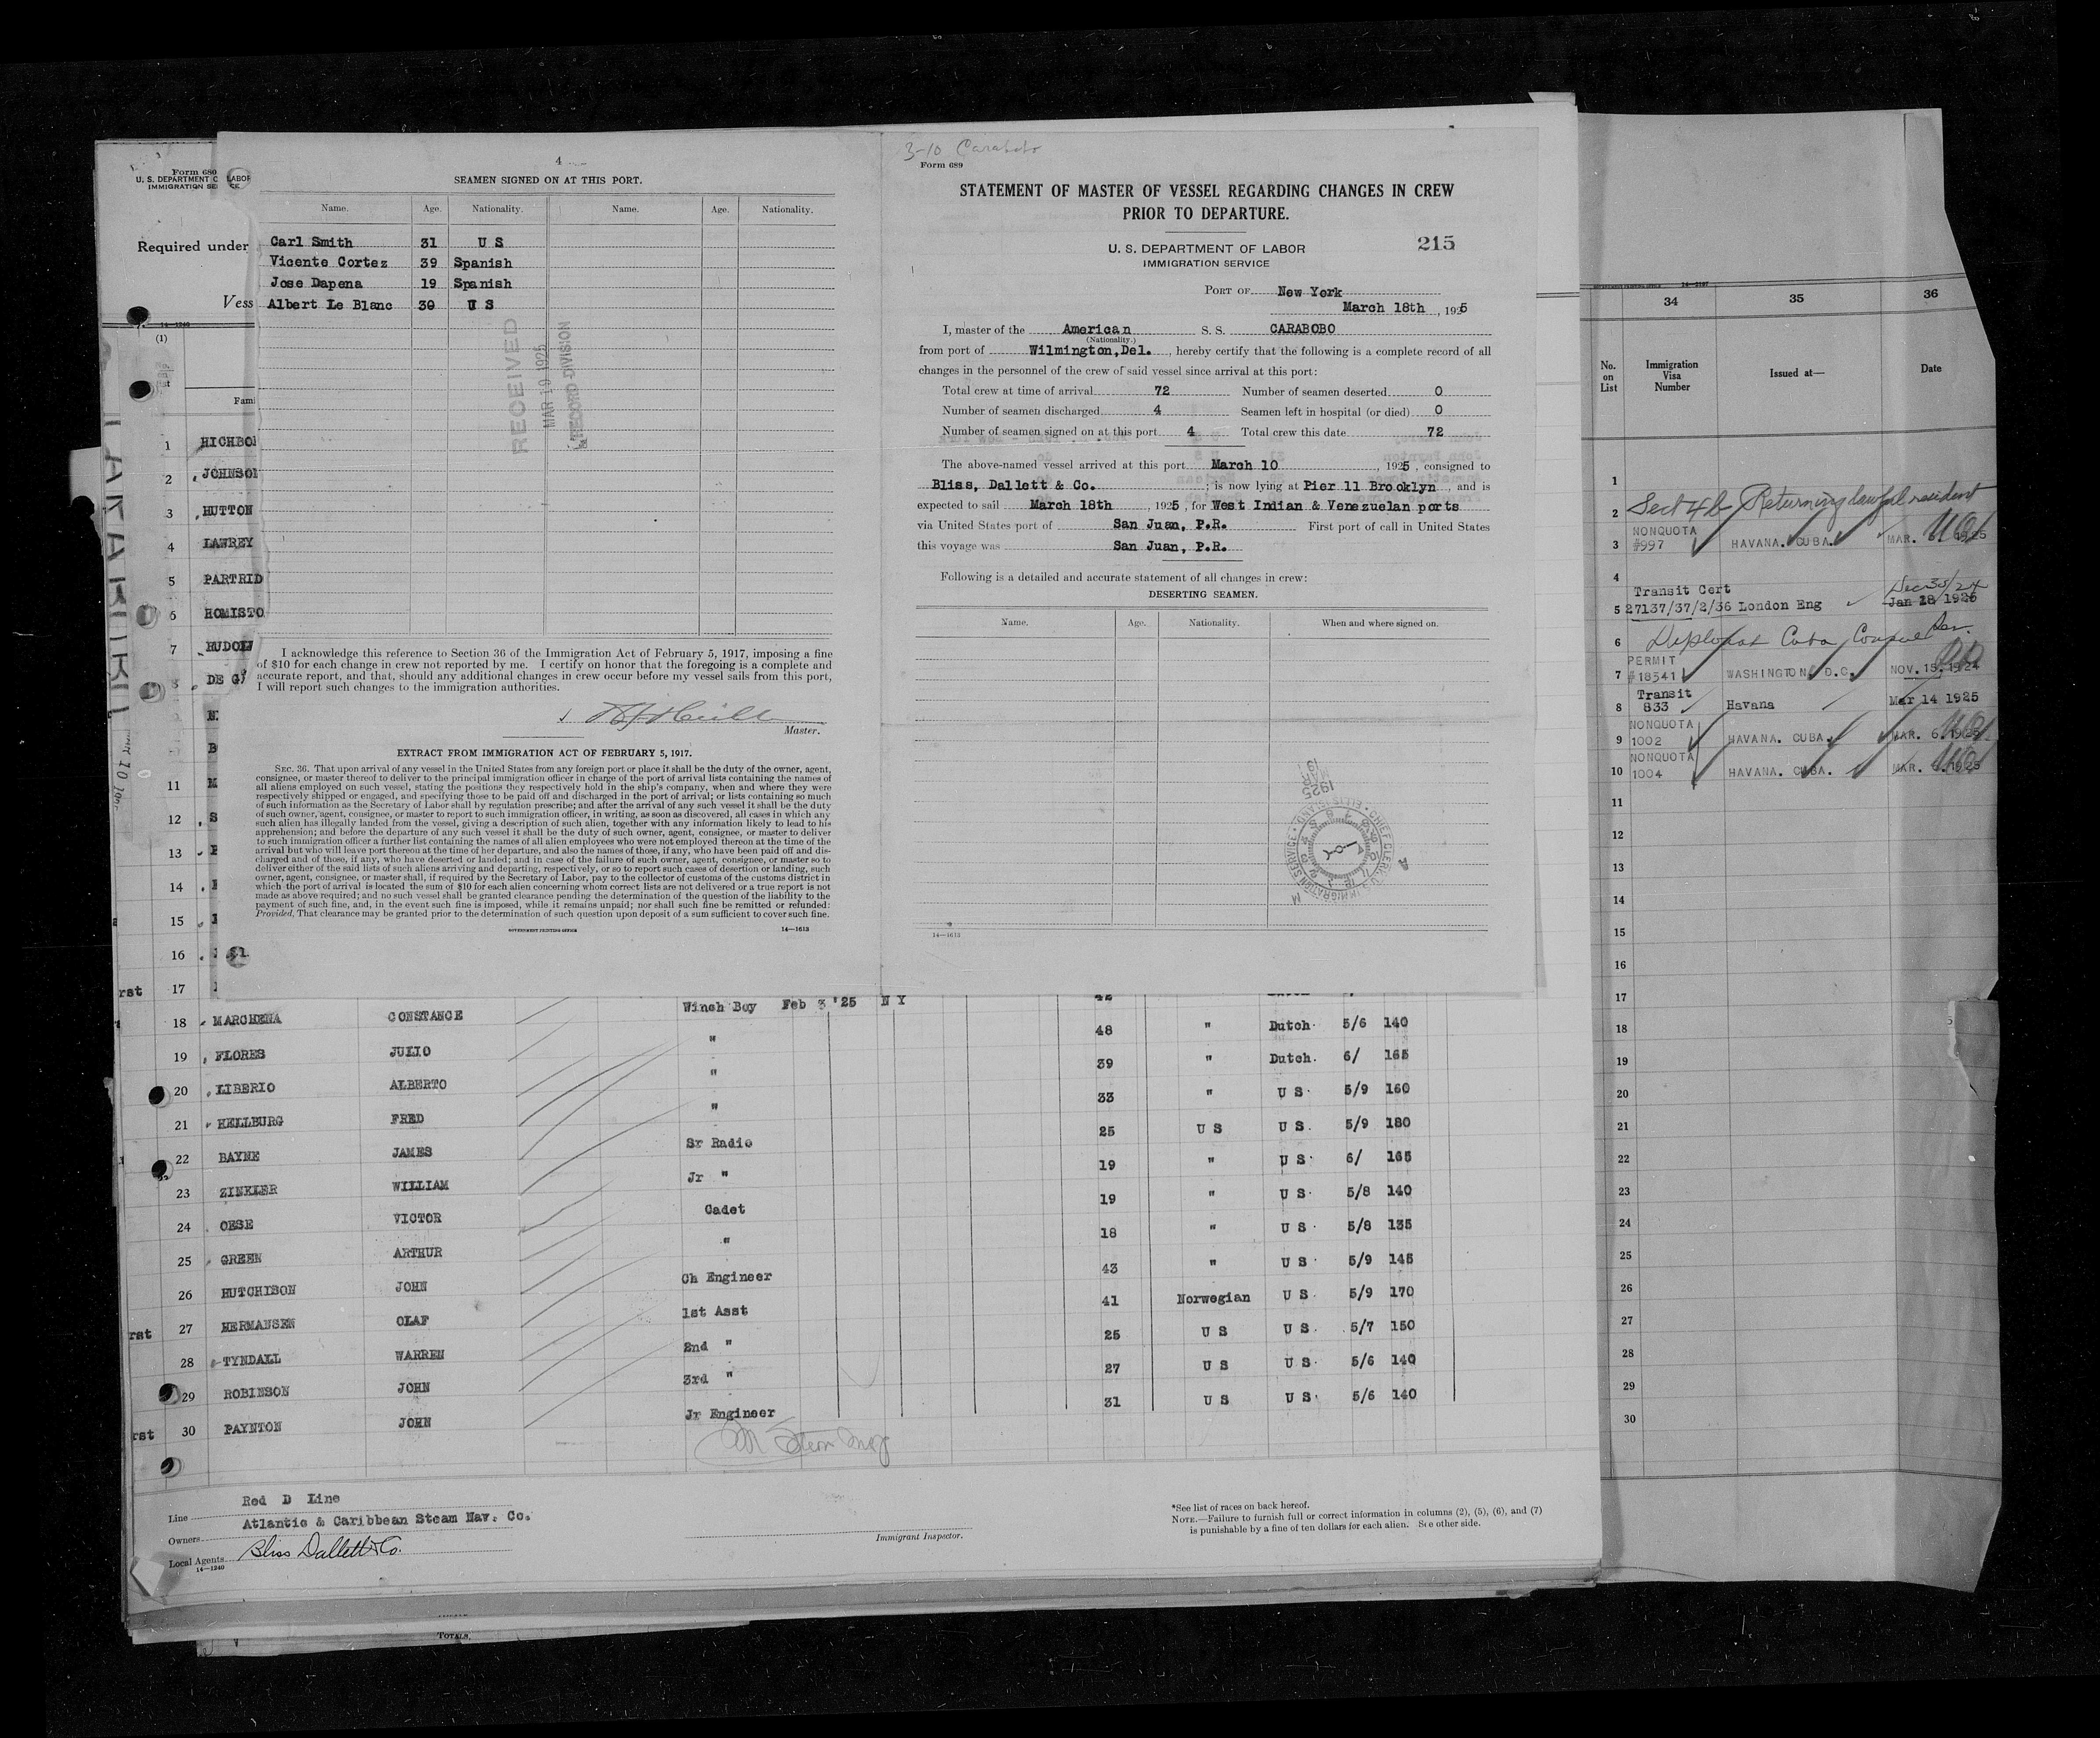 4
SEAMEN SIGNED ON AT THIS PORT.
Name. Age. Nationality. Name. Age. Nationality.
Carl Smith 31 U S
Vicente Cortez 39 Spanish
Jose Dapena 19 Spanish
Albert Le Blanc 30 U S
RECEIVED
MAR 19 1925
RECORD DIVISION
I acknowledge this reference to Section 36 of the Immigration Act of February 5, 1917, imposing a fine
of $10 for each change in crew not reported by me. I certify on honor that the foregoing is a complete and
accurate report, and that, should any additional changes in crew occur before my vessel sails from this port,
I will report such changes to the immigration authorities.
Master.
EXTRACT FROM IMMIGRATION ACT OF FEBRUARY 5, 1917.
SEC. 36. That upon arrival of any vessel in the United States from any foreign port or place it shall be the duty of the owner, agent,
consignee, or master thereof to deliver to the principal immigration officer in charge of the port of arrival lists containing the names of
all aliens employed on such vessel, stating the positions they respectively hold in the ship's company, when and where they were
respectively shipped or engaged, and specifying those to be paid off and discharged in the port of arrival; or lists containing so much
of such information as the Secretary of Labor shall by regulation prescribe; and after the arrival of any such vessel it shall be the duty
of such owner, agent, consignee, or master to report to such immigration officer, in writing, as soon as discovered, all cases in which any
such alien has illegally landed from the vessel, giving a description of such alien, together with any information likely to lead to his
apprehension; and before the departure of any such vessel it shall be the duty of such owner, agent, consignee, or master to deliver
to such immigration officer a further list containing the names of all alien employees who were not employed thereon at the time of the
arrival but who will leave port thereon at the time of her departure, and also the names of those, if any, who have been paid off and dis-
charged and of those, if any, who have deserted or landed; and in case of the failure of such owner, agent, consignee, or master so to
deliver either of the said lists of such aliens arriving and departing, respectively, or so to report such cases of desertion or landing, such
owner, agent, consignee, or master shall, if required by the Secretary of Labor, pay to the collector of customs of the customs district in
which the port of arrival is located the sum of $10 for each alien concerning whom correct lists are not delivered or a true report is not
made as above required; and no such vessel shall be granted clearance pending the determination of the question of the liability to the
payment of such fine, and, in the event such fine is imposed, while it remains unpaid; nor shall such fine be remitted or refunded:
Provided, That clearance may be granted prior to the determination of such question upon deposit of a sum sufficient to cover such fine.
GOVERNMENT PRINTING OFFICE 14—1613
3-10 Carabobo
Form 689
STATEMENT OF MASTER OF VESSEL REGARDING CHANGES IN CREW
PRIOR TO DEPARTURE.
U. S. DEPARTMENT OF LABOR 215
IMMIGRATION SERVICE
PORT OF New York
March 18th, 1925
I, master of the American S. S. CARABOBO
(Nationality.)
from port of Wilmington, Del., hereby certify that the following is a complete record of all
changes in the personnel of the crew of said vessel since arrival at this port:
Total crew at time of arrival 72 Number of seamen deserted 0
Number of seamen discharged 4 Seamen left in hospital (or died) 0
Number of seamen signed on at this port 4 Total crew this date 72
The above-named vessel arrived at this port March 10, 1925, consigned to
Bliss, Dallett & Co.; is now lying at Pier 11 Brooklyn, and is
expected to sail March 18th, 1925, for West Indian & Venezuelan ports
via United States port of San Juan, P.R. First port of call in United States
this voyage was San Juan, P.R.
Following is a detailed and accurate statement of all changes in crew:
DESERTING SEAMEN.
Name. Age. Nationality. When and where signed on.
1925
CHIEF CLERK, U.S. IMMIGRATION SERVICE ELLIS ISLAND
14—1613
Form 680
U. S. DEPARTMENT O LABOR
IMMIGRATION SE CE
Required under
Vess
14—1240
(1)
Fami
1 HICHBO
2 JOHNSON
3 HUTTON
4 LAWREY
5 PARTRID
6 HOMISTO
7 RUDOL
8 DE G
11 M
12 S
13
14
15
16
rst 17
Winch Boy Feb 3 '25 N Y 42
18 MARCHENA CONSTANCE " 48 " Dutch 5/6 140
19 FLORES JULIO " 39 " Dutch 6/ 165
20 LIBERIO ALBERTO " 33 " U S 5/9 160
21 HELLBURG FRED 25 U S U S 5/9 180
22 BAYNE JAMES Sr Radio 19 " U S 6/ 165
23 ZINKLER WILLIAM Jr " 19 " U S 5/8 140
24 OESE VICTOR Cadet 18 " U S 5/8 135
25 GREEN ARTHUR " 43 " U S 5/9 145
26 HUTCHISON JOHN Ch Engineer 41 Norwegian U S 5/9 170
rst 27 HERMANSEN OLAF 1st Asst 25 U S U S 5/7 150
28 TYNDALL WARREN 2nd " 27 U S U S 5/6 140
29 ROBINSON JOHN 3rd " 31 U S U S 5/6 140
rst 30 PAYNTON JOHN Jr Engineer
Line Red D Line
Owners Atlantic & Caribbean Steam Nav. Co.
Local Agents Bliss Dallett & Co.
14—1240
Immigrant Inspector.
*See list of races on back hereof.
NOTE.—Failure to furnish full or correct information in columns (2), (5), (6), and (7)
is punishable by a fine of ten dollars for each alien. See other side.
TOTALS,
34 35 36
No. on List Immigration Visa Number Issued at— Date
1
2 Sect 4b Returning lawful resident
3 NONQUOTA #997 HAVANA. CUBA. MAR. 1925
4
5 Transit Cert 27137/37/2/36 London Eng Dec 30/24 Jan 28 1925
6 Diplomat Cuba Consul
7 PERMIT #18541 WASHINGTON, D.C. NOV. 15. 1924
8 Transit 833 Havana Mar 14 1925
9 NONQUOTA 1002 HAVANA. CUBA. MAR. 6. 1925
10 NONQUOTA 1004 HAVANA. CUBA. MAR. 1925
11
12
13
14
15
16
17
18
19
20
21
22
23
24
25
26
27
28
29
30